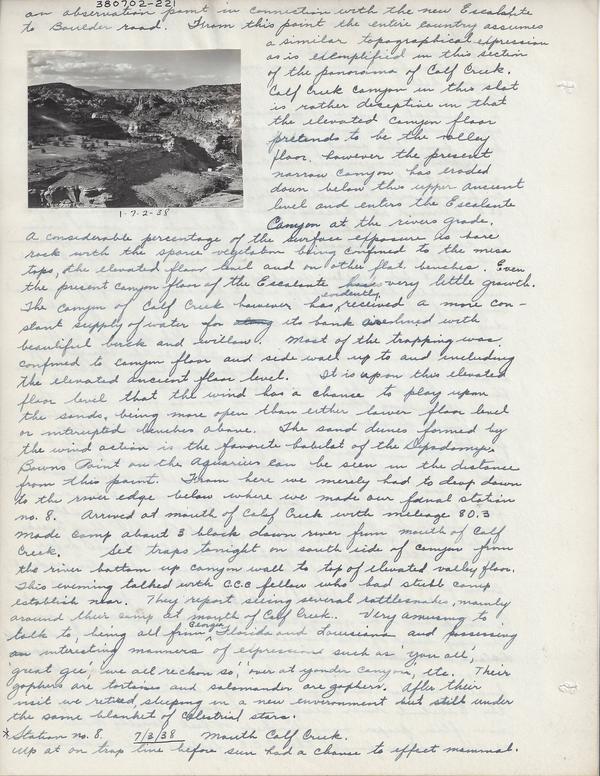 380702-221
an observation point in connection with the new Escalante
to Boulder road. From this point the entire country assumes
a similar topographical expression
as is exemplified in this section
of the panorama of Calf Creek.
Calf Creek Canyon in this shot
is rather deseptive in that
the elevated canyon floor
pretends to be the valley
floor, however the present
narrow canyon has eroded
down below this upper ancient
level and enters the Escalante
Canyon at the rivers grade.
1-7-2-38
A considerable percentage of the surface exposure is bare
rock with the sparce vegetation being confined to the mesa
tops, the elevated floor level and on other flat benches. Even
the present canyon floor of the Escalante has very little growth.
The canyon of Calf Creek however has evidently received a more con-
stant supply of water for its bank are lined with
beautiful birch and willow. Most of the trapping was
confined to canyon floor and side wall up to and including
the elevated ancient floor level. It is upon this elevated
floor level that the wind has a chance to play upon
the sands, being more open than either lower floor level
or interupted benches above. The sand dunes formed by
the wind action is the favorite habitat of the Dipodomys.
Bowns Point on the Aquarius can be seen in the distance
from this point. From here we merely had to drop down
to the river edge below where we made our fanal station
no. 8. Arrived at mouth of Calf Creek with mileage 80.3
Made camp about 3 block down river from mouth of Calf
Creek. Set traps tonight on south side of canyon from
the river bottom up canyon wall to top of elevated valley floor.
This evening talked with C.C.C fellow who had stub camp
establish near. They report seeing several rattlesnakes, mainly
around their camp at mouth of Calf Creek. Very amusing to
talk to, being all from Georgia, Florida and Louisiana and possessing
an interesting manners of expression such as 'you all',
'great gee', 'we all reckon so', 'over at yonder canyon', etc. Their
gophers are tortoises and salamander are gophers. After their
visit we retired, sleeping in a new environment but still under
the same blanket of celestrial stars.
* Station no. 8. 7/3/38 Mouth Calf Creek.
Up at on trap line before sun had a chance to effect mammal.